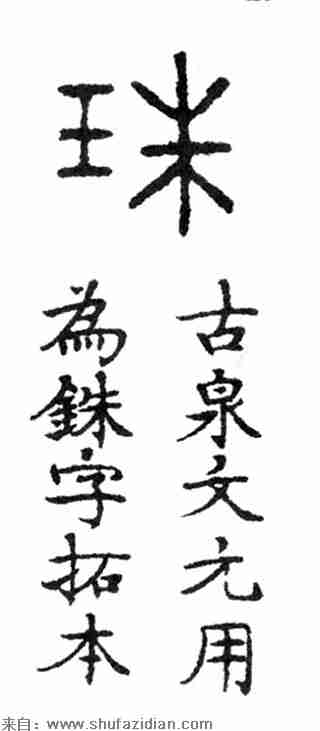 珠
古泉文元用
為銖字拓本
来自：www.shufazidian.com